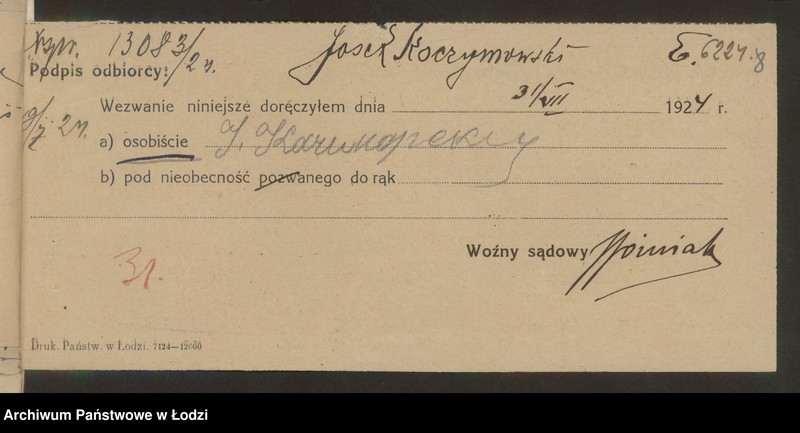 13083/24. Josek Koczymowski E. 6224.8
Podpis odbiorcy:
Wezwanie niniejsze doręczyłem dnia 31/VII 1924 r.
9/7 24.
a) osobiście J.
b) pod nieobecność pozwanego do rąk
Woźny sądowy
31.
Druk. Państw. w Łodzi. 7124—12000
Archiwum Państwowe w Łodzi